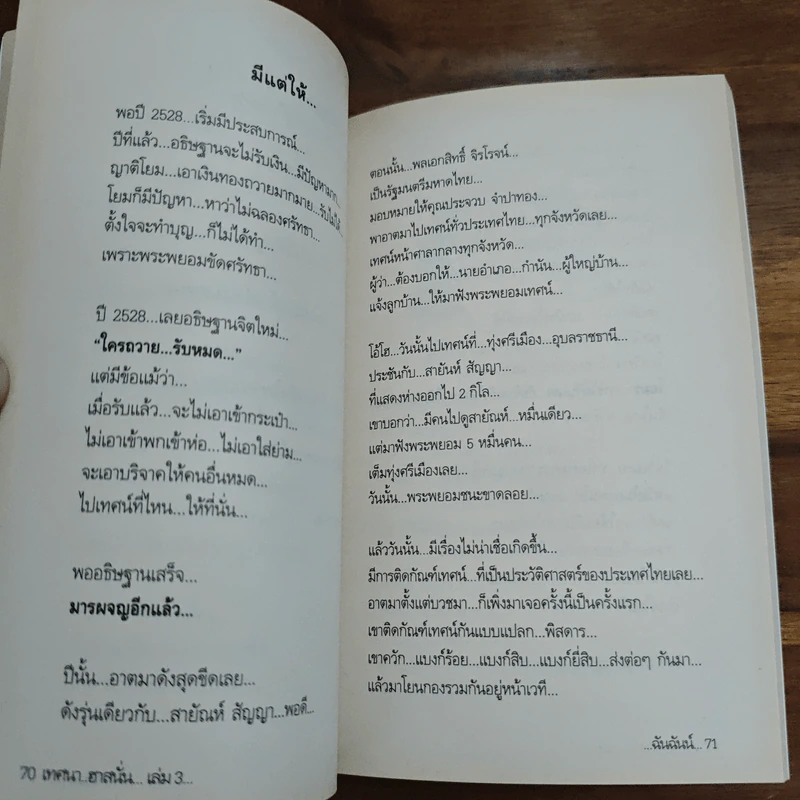 มีแต่ให้...
พอปี 2528...เริ่มมีประสบการณ์...
ปีที่แล้ว...อธิษฐานจะไม่รับเงิน...มีปัญหามาก...
ญาติโยม...เอาเงินทองถวายมากมาย...รับไม่ได้...
โยมก็มีปัญหา...หาว่าไม่ฉลองศรัทธา...
ตั้งใจจะทำบุญ...ก็ไม่ได้ทำ...
เพราะพระพยอมขัดศรัทธา...
ปี 2528...เลยอธิษฐานจิตใหม่...
“ใครถวาย...รับหมด...”
แต่มีข้อแม้ว่า...
เมื่อรับแล้ว...จะไม่เอาเข้ากระเป๋า...
ไม่เอาเข้าพกเข้าห่อ...ไม่เอาใส่ย่าม...
จะเอาบริจาคให้คนอื่นหมด...
ไปเทศน์ที่ไหน...ให้ที่นั่น...
พออธิษฐานเสร็จ...
มารผจญอีกแล้ว...
ปีนั้น...อาตมาดังสุดขีดเลย...
ดังรุ่นเดียวกับ...สายัณห์ สัญญา...พอดี...
70 เทศนา..ฮาสนั่น... เล่ม 3...
ตอนนั้น...พลเอกสิทธิ์ จิรโรจน์...
เป็นรัฐมนตรีมหาดไทย...
มอบหมายให้คุณประจวบ จำปาทอง...
พาอาตมาไปเทศน์ทั่วประเทศไทย...ทุกจังหวัดเลย...
เทศน์หน้าศาลากลางทุกจังหวัด...
ผู้ว่า...ต้องบอกให้...นายอำเภอ...กำนัน...ผู้ใหญ่บ้าน...
แจ้งลูกบ้าน...ให้มาฟังพระพยอมเทศน์...
โอ้โฮ...วันนั้นไปเทศน์ที่...ทุ่งศรีเมือง...อุบลราชธานี...
ประชันกับ...สายันห์ สัญญา...
ที่แสดงห่างออกไป 2 กิโล...
เขาบอกว่า...มีคนไปดูสายัณห์...หมื่นเดียว...
แต่มาฟังพระพยอม 5 หมื่นคน...
เต็มทุ่งศรีเมืองเลย...
วันนั้น...พระพยอมชนะขาดลอย...
แล้ววันนั้น...มีเรื่องไม่น่าเชื่อเกิดขึ้น...
มีการติดกัณฑ์เทศน์...ที่เป็นประวัติศาสตร์ของประเทศไทยเลย...
อาตมาตั้งแต่บวชมา...ก็เพิ่งมาเจอครั้งนี้เป็นครั้งแรก...
เขาติดกัณฑ์เทศน์กันแบบแปลก...พิสดาร...
เขาควัก...แบงก์ร้อย...แบงก์สิบ...แบงก์ยี่สิบ...ส่งต่อๆ กันมา...
แล้วมาโยนกองรวมกันอยู่หน้าเวที...
...ฉันฉันน์... 71